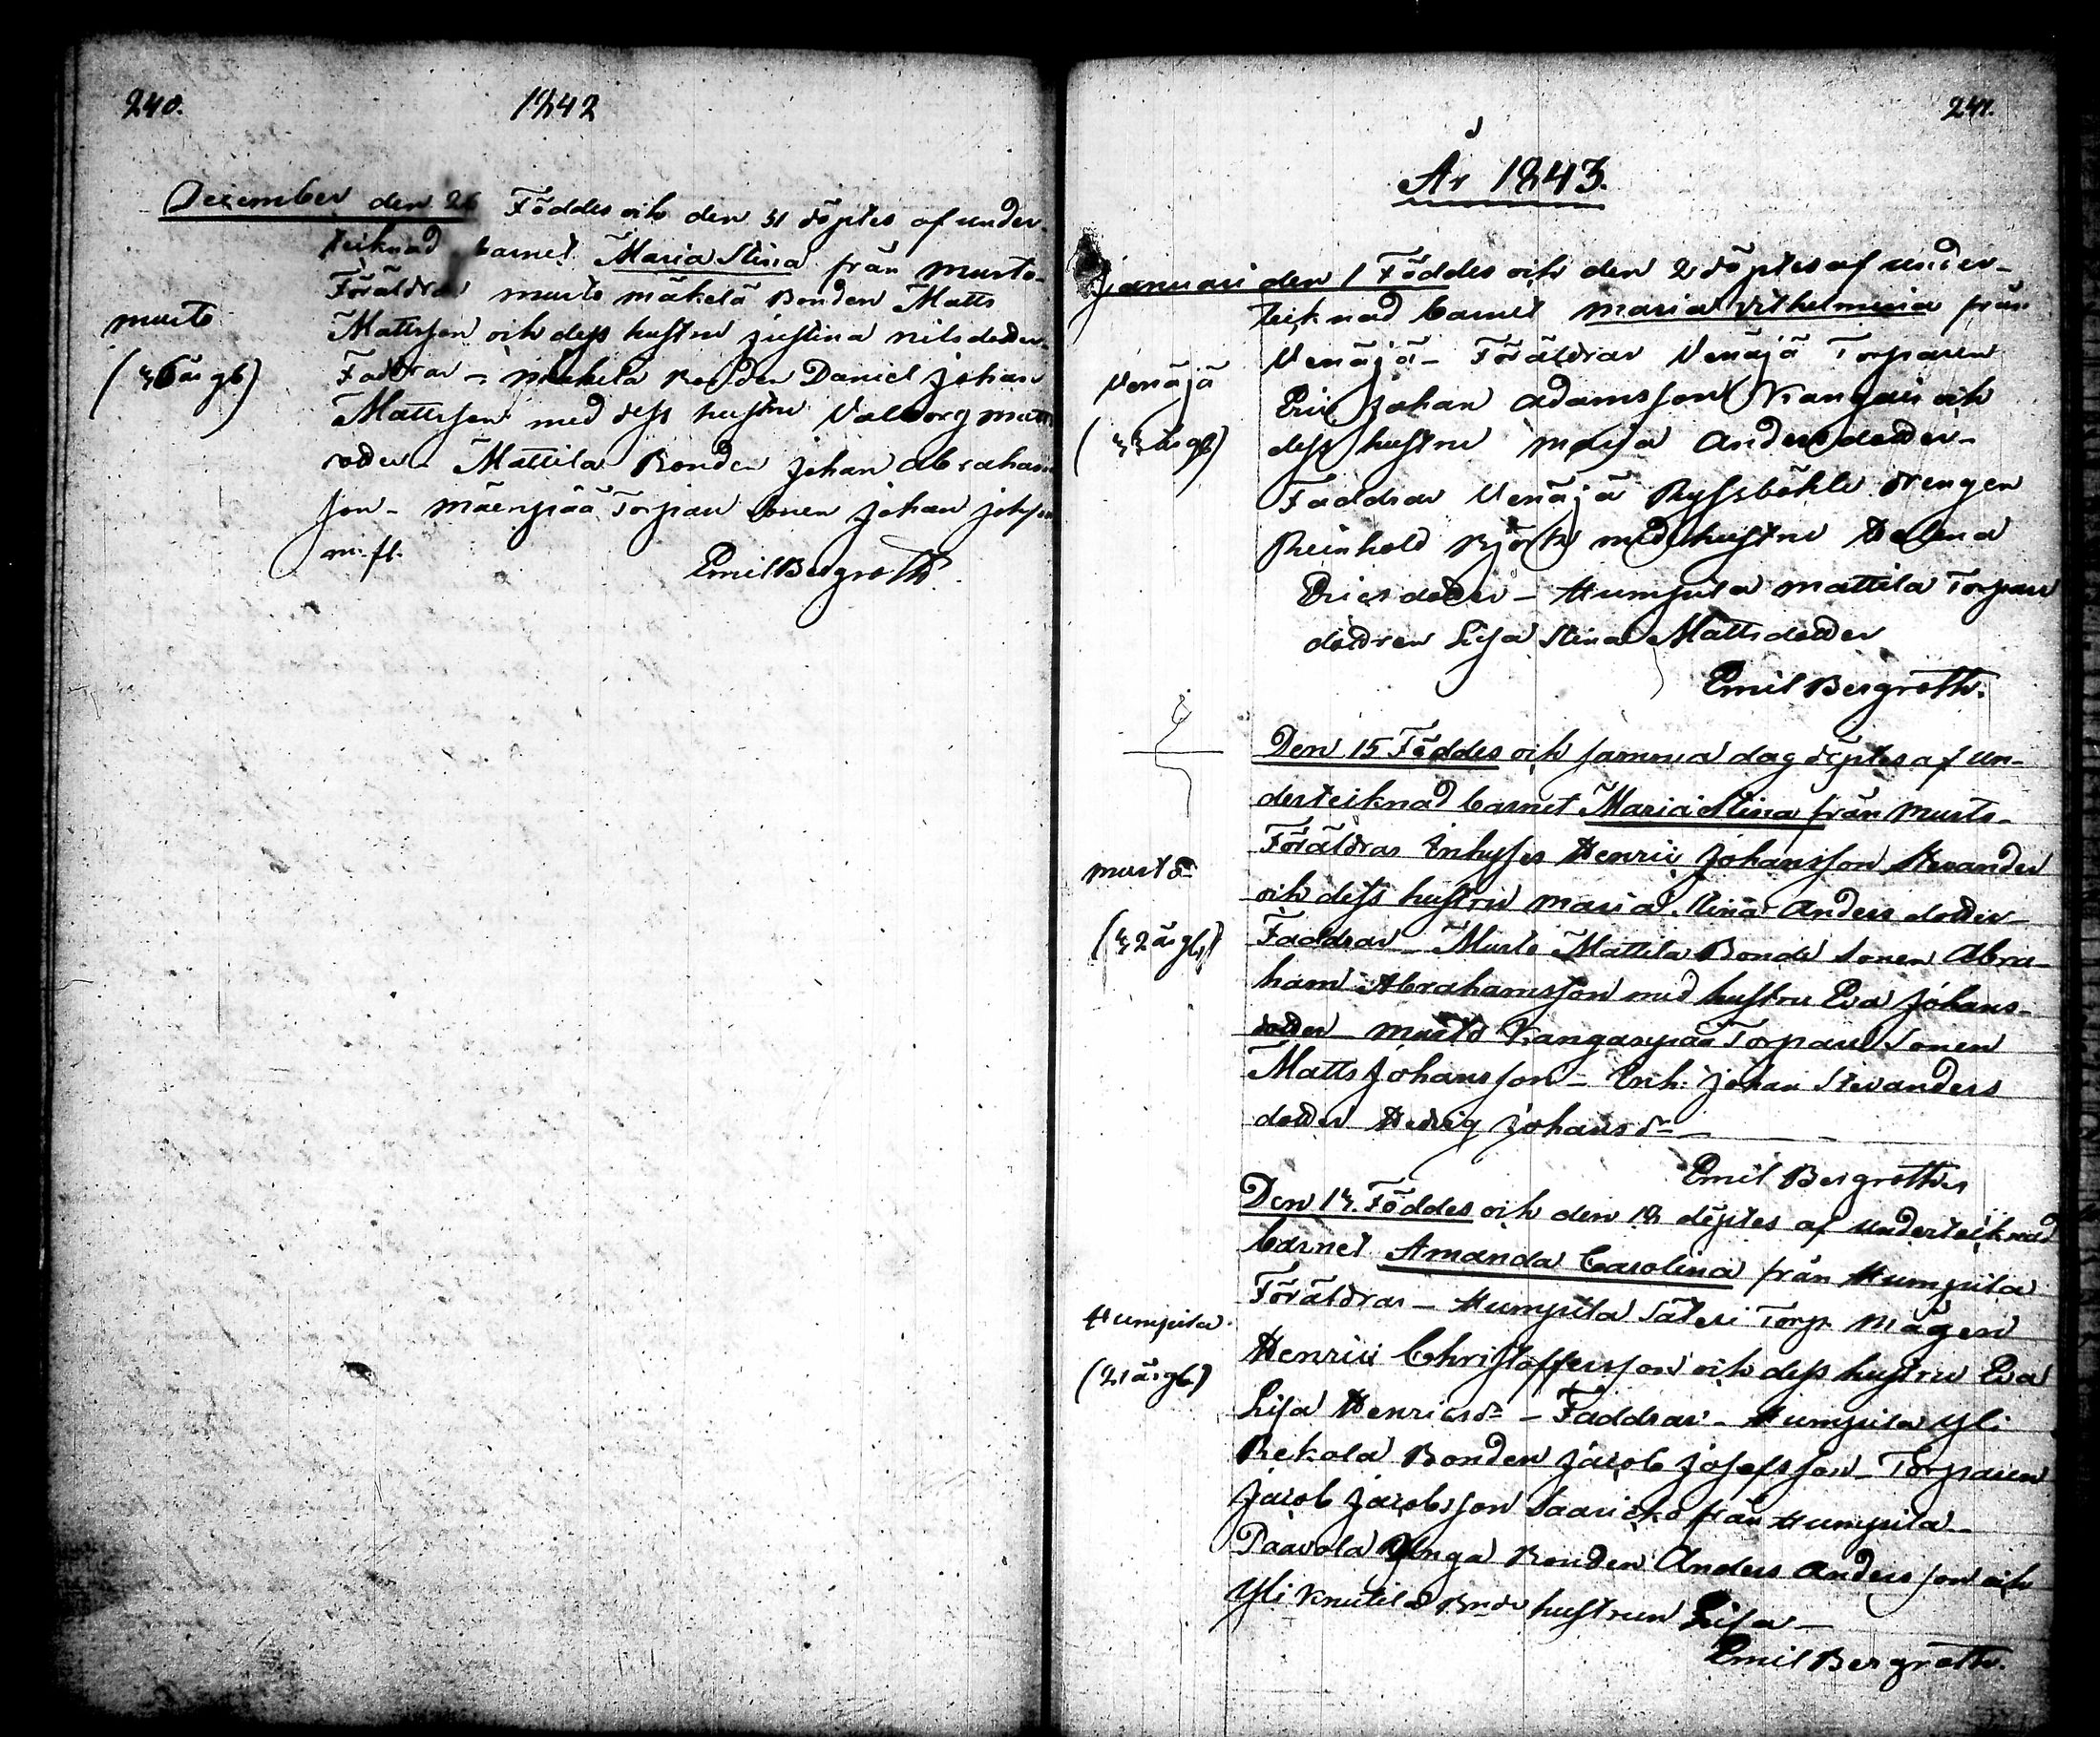 240.
1842
December den 26 Föddes och den 31 döptes af under-
teiknad barnet Maria Stina från Murto-
Föräldrar Murto Mäkelä Bonden Matts
Murto
Mattsson och dess hustru Justina Nilsdotter-
(36 år gl)
Faddrar - Mäkelä Bonden Daniel Johan
Mattsson med dess hustru Valborg Matts
dotter - Mattila Bonden Johan Abrahams
son - Mäenpää Torpare sonen Johan Johs son
m. fl.
Emil Bergroth
241.
År 1843.
Januari den 1 Föddes och den 2 döptes af under-
teiknad barnet Maria Vilhelmina från
Venäjä - Föräldrar Venäjä Torparen
Venäjä
Eric Johan Adamsson Kangais och
(33 år gl)
dess hustru Maja Andersdotter-
Faddrar Venäjä Ryssböhle drengen
Reinhold Björk med hustru Helena
Ericsdotter - Humpila Mattila Torpare
dottren Lisa Stina Mattsdotter
Emil Bergroth.
Den 15 Föddes och samma dag döptes af un-
derteiknad barnet Maria Stina från Murto-
Föräldrar Inhyses Henric Johansson Stevander
Murto
och dess hustru Maria Stina Andersdotter-
(32 år gl)
Faddrar - Murto Mattila Bonde Sonen Abra-
ham Abrahamsson med hustru Eva Johans-
dotter - Murto Kangaspää Torpare Sonen
Matts Johansson - Inh: Johan Stevanders
dotter Hedvig Johansdr -
Emil Bergroth
Den 13. Föddes och den 18 döptes af underteiknad
barnet Amanda Carolina från Humpila
Föräldrar - Humpila Säteri Torp Mågen
Humpila
Henric Christoffersson och dess hustru Eva
(21 år gl)
Lisa Henricsdr - Faddrar - Humpila Yli
Rekola Bonden Jacob Josefsson - Torparen
Jacob Jacobsson Saaricko från Humpila -
Paavola Ynga Bonden Anders Andersson och
Yli Knutila Bnde hustrun Lisa -
Emil Bergroth.